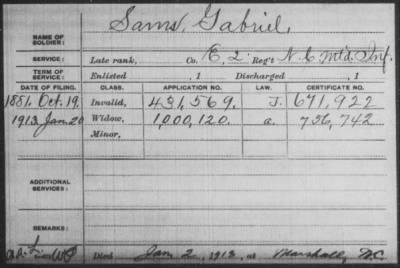 NAME OF SOLDIER: Sams, Gabriel,
SERVICE: Late rank, Co. E, 2 Reg't N.C. Mtd. Inf.
TERM OF SERVICE: Enlisted , 1 Discharged , 1
DATE OF FILING. CLASS. APPLICATION NO. LAW. CERTIFICATE NO.
1881, Oct. 19, Invalid, 431,569. J. 671,922
1913 Jan. 20 Widow, 1,000,120. a. 756,742
Minor,
ADDITIONAL SERVICES:
REMARKS:
Died Jan 2, 1913, at Marshall, N.C.